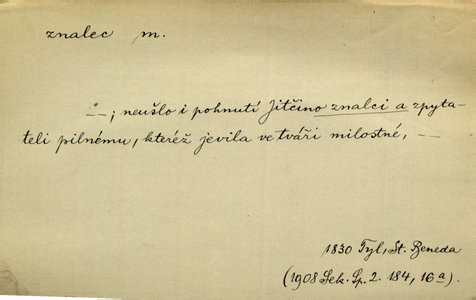 znalec m.
–÷–; neušlo i pohnutí Jitčino znalci a zpyta-
teli pilnému, kteréž jevila ve tváři milostné, – –
1830 Tyl, St. Beneda
(1908 Sek. Sp. 2. 184, 16a).